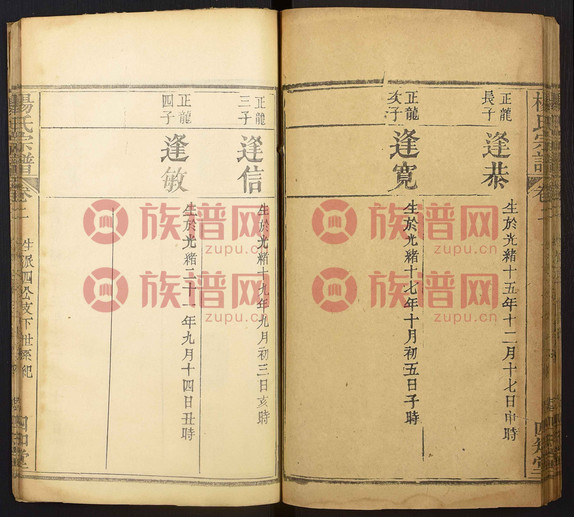 楊氏宗譜
卷二
四知堂
正龍長子
逢恭
生於光緒十五年十二月十七日申時
正龍次子
逢寬
生於光緒十七年十月初五日子時
正龍三子
逢信
生於光緒十九年九月初三日亥時
正龍四子
逢敏
生於光緒二十一年九月十四日丑時
楊氏宗譜
卷二
派四公支下世系紀
四知堂
族谱网
zupu.cn
族谱网
zupu.cn
族谱网
zupu.cn
族谱网
zupu.cn